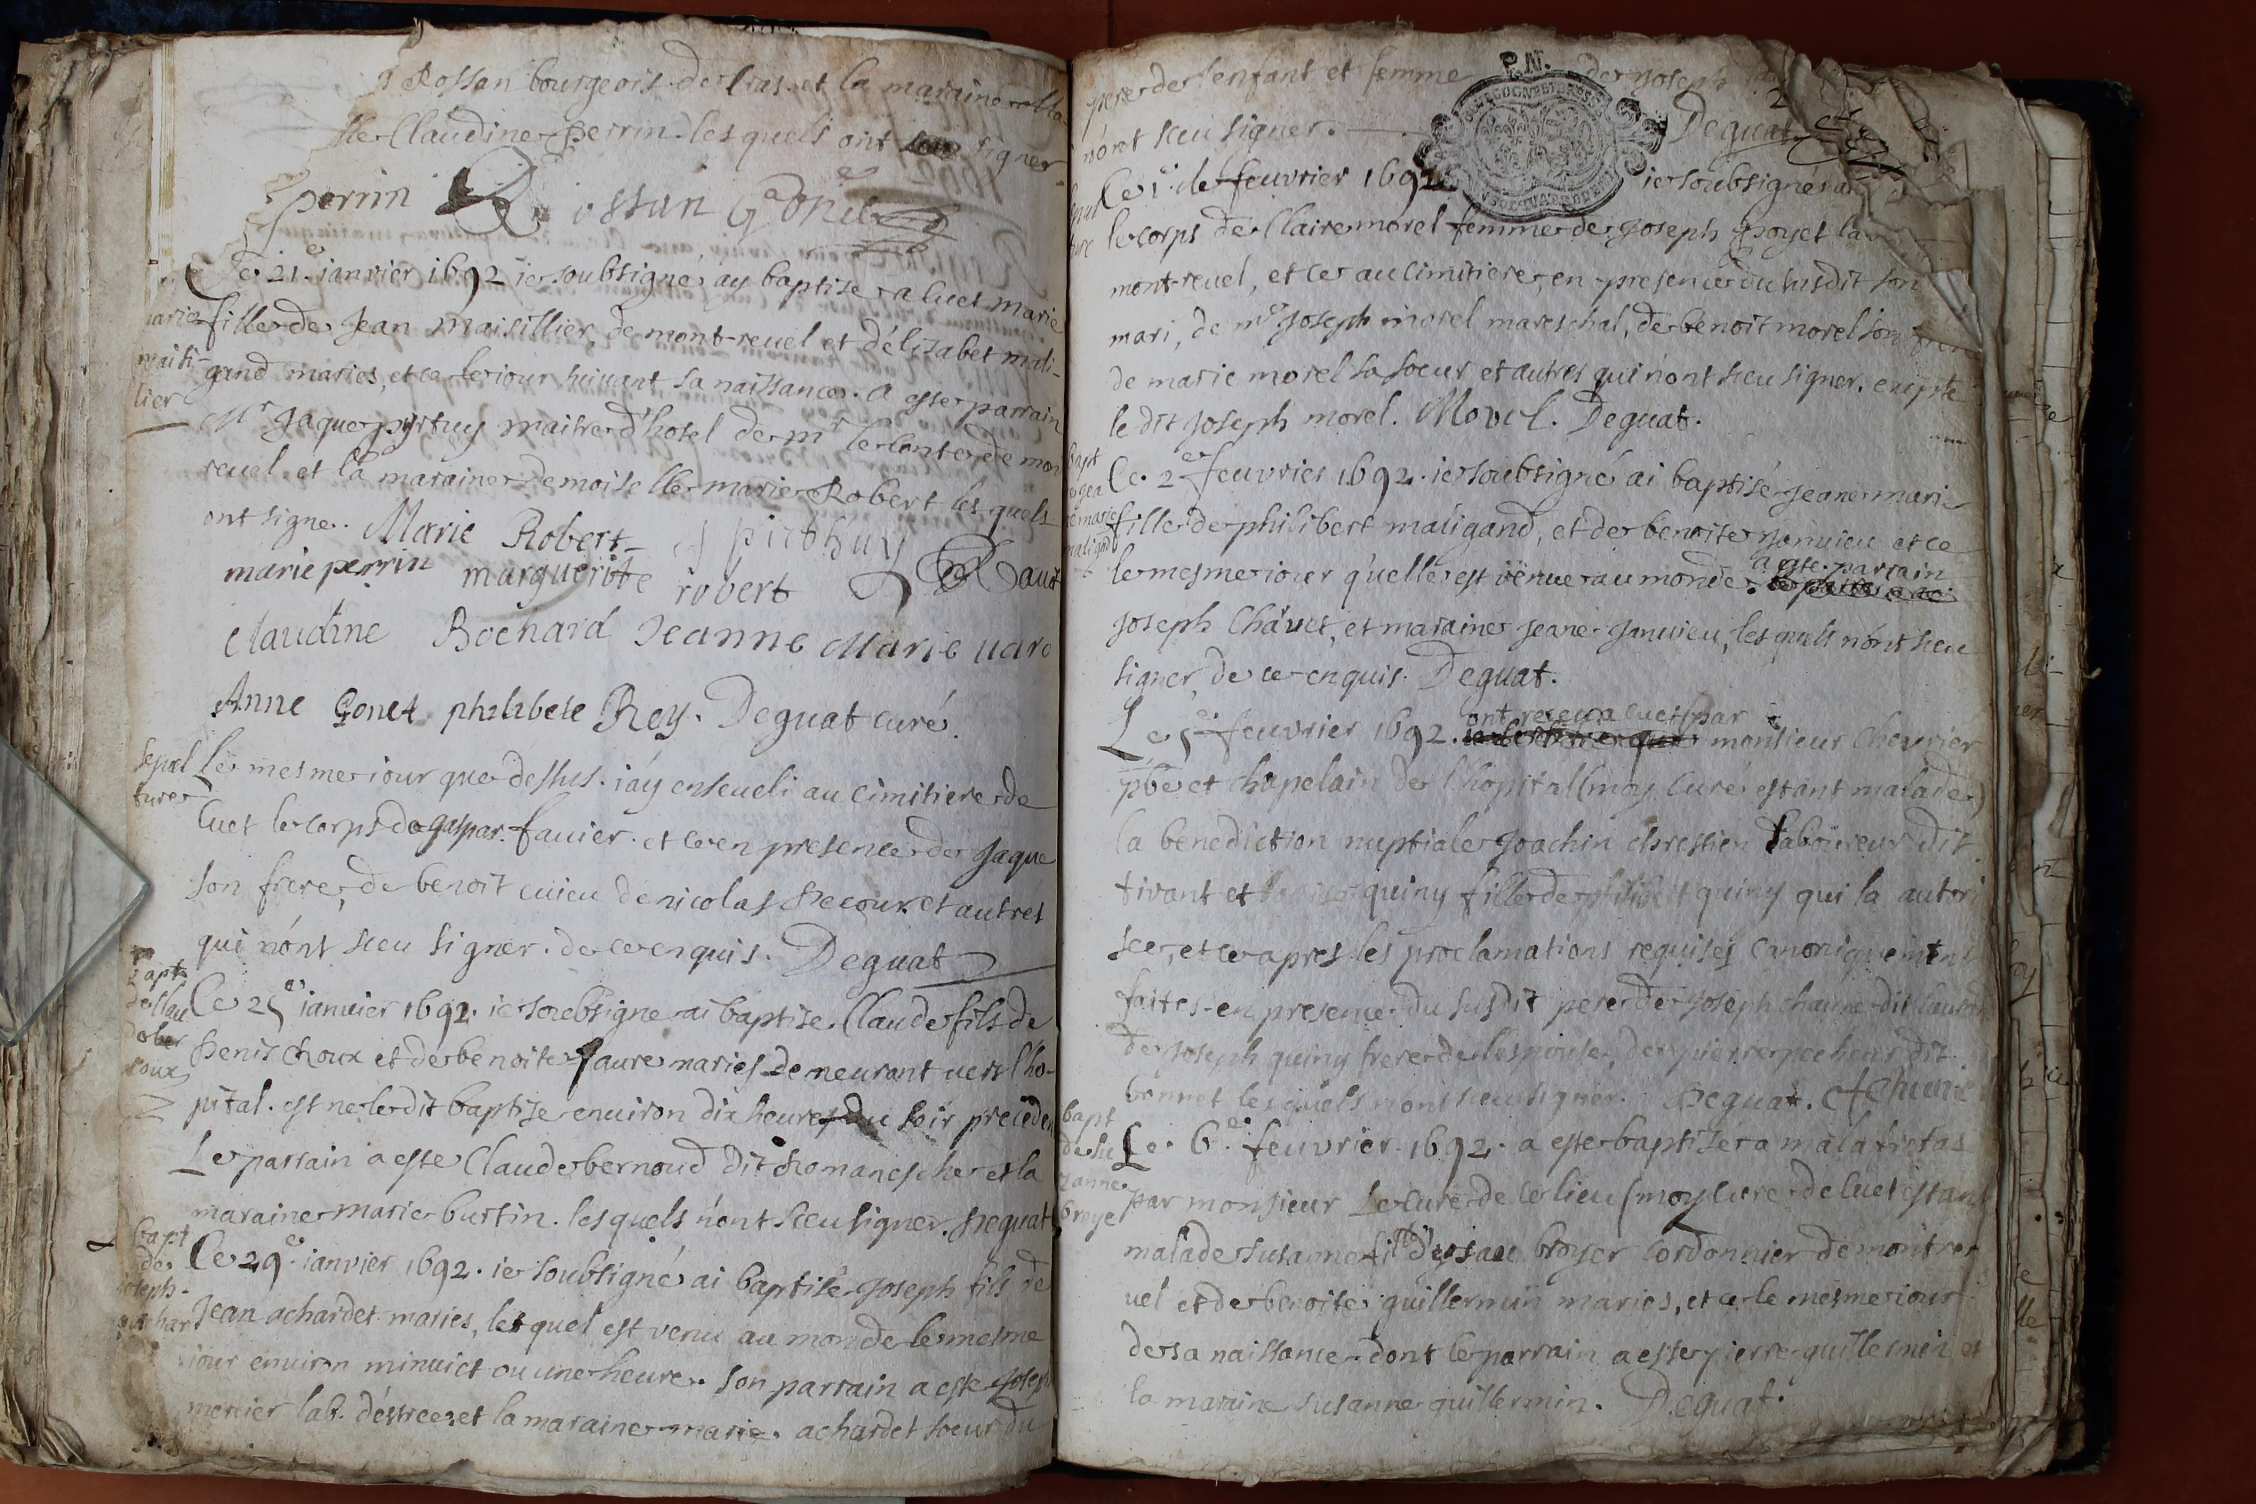 Rossan bourgeois de bras et la maraine
Claudine perrin les quels ont signer
perrin Rossan
Ce 21e janvier 1692 ie soubsigné ay baptise a Cuet marie
fille de Jean maisillier, de mont-reuel et d'élizabet mali-
gand maries, et ce le iour suiuant sa naissance. a este parrain
Mr Jaque pirtuy maitre d'hotel de mr le Conte de mon
reuel et la maraine demoiselle marie Robert les quels
ont signe. Marie Robert pirthuy
marie perrin marguerite robert
Claudine Bochard Jeanne Marie uaro
Anne Gonet philibete Rey. Deguat curé.
marie
maisi-
lier
sepul
ture
Le mesme iour que dessus. i'ay enseueli au cimitiere de
Cuet le corps de gaspar fauier. et ce en presence de Jaque
son frere, de benoit cuieu de nicolas Decour et autres
qui n'ont sceu signer. de ce enquis. Deguat
bapt
de Clau
de
roux
Ce 25e ianvier 1692. ie soubsigne ai baptise. Claude fils de
Denis Roux et de benoite faure maries demeurant uers l'ho-
pital. est ne le dit baptise enuiron dix heures du soir preceden
Le parrain a este Claude bernoud dit Romanesche et la
maraine marie burtin. les quels n'ont sceu signer. Deguat
bapt
de
Joseph
achar
Ce 29e. ianvier 1692. ie soubsigné ai baptisé Joseph fils de
Jean achardet maries, lequel est venu au monde le mesme
iour enuiron minuict ou une heure. son parrain a este Joseph
mercier lab. d'éstrees et la maraine marie achardet soeur du
pere de l'enfant et femme de Joseph
n'ont sceu signer. Deguat
2
Ce 1e. de feuvrier 1692 ie soubsigné
le corps de Claire morel femme de Joseph poyet
mont-reuel, et ce au cimitiere, en presence du susdit son
mari, de me Joseph morel mareschal, de benoit morel son frere
de marie morel sa soeur et autres qui n'ont sceu signer. exepte
le dit Joseph morel. Morel. Deguat.
bapt
de Jea
ne marie
maligand
Ce. 2e feuvrier 1692. ie soubsigné ai baptisé Jeane marie
fille de philibert maligand, et de benoite Januieu et ce
le mesme iour qu'elle est venue au monde. a este parrain
Joseph Chauet, et maraine Jeane Januieu, les quels n'ont sceu
signer, de ce enquis. Deguat.
Le 5e feuvrier 1692. ont receu a cuet par monsieur Cheurier
pbre et chapelain de l'hopital (moy Curé estant malade)
la benediction nuptiale Joachin chrestien laboureur dit
tivant et quiny fille de philibert quiny qui la autori
see, et ce apres les proclamations requises Canoniquement
faites en presence du susdit pere de Joseph
de Joseph quiny frere de l'espouse, de pierre pecheur dit
bonnet les quels n'ont sceu signer. Deguat.
bapt
de su
zanne
broye
Le. 6e. feuvrier 1692. a este baptizé a malafretas
par monsieur Le Curé de ce lieu (moy Cure de Cuet estan
malade susanne fille d'ysaac broyer Cordonnier de montre
uel et de benoite guillermin maries, et ce le mesme iour
de sa naissance dont le parrain a este pierre guillermin et
la maraine susanne guillermin. Deguat.